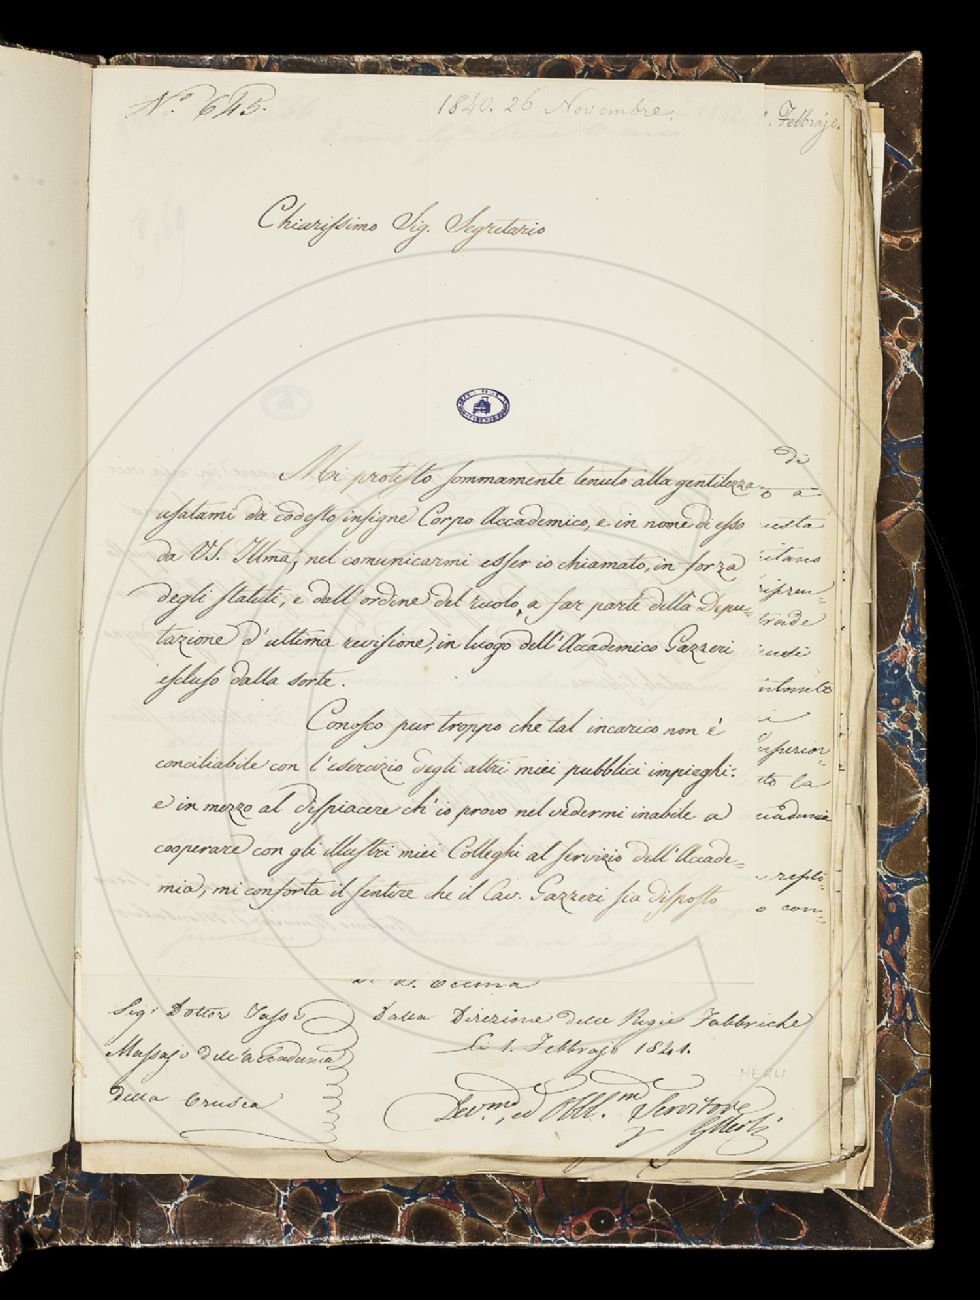 N.° 645.
1840. 26 Novembre.
Febbrajo.
Chiarissimo Sig. Segretario
Mi protesto sommamente tenuto alla gentilezza
usatami da codesto insigne Corpo Accademico, e in nome di esso
da V.S. Illma, nel comunicarmi esser io chiamato, in forza
degli statuti, e dall'ordine del ruolo, a far parte della Depu=
tazione d'ultima revisione, in luogo dell'Accademico Gazzeri
escluso dalla sorte.
Conosco pur troppo che tal incarico non è
conciliabile con l'esercizio degli altri miei pubblici impieghi:
e in mezzo al dispiacere ch'io provo nel vedermi inabile a
cooperare con gli illustri miei Colleghi al servizio dell'Accade=
mia, mi conforta il sentire che il Cav. Gazzeri sia disposto
di
a
esta
itano
ripren=
trade
iusti
i
nferior=
to la
cademia
o con=
Sig.r Dottor Tassi
Massajo dell'accademia
della Crusca
Dalla Direzione delle Regie Fabbriche
Li 1. Febbrajo 1841.
NERLI
Dev.mo ed Obbl.mo Servitore